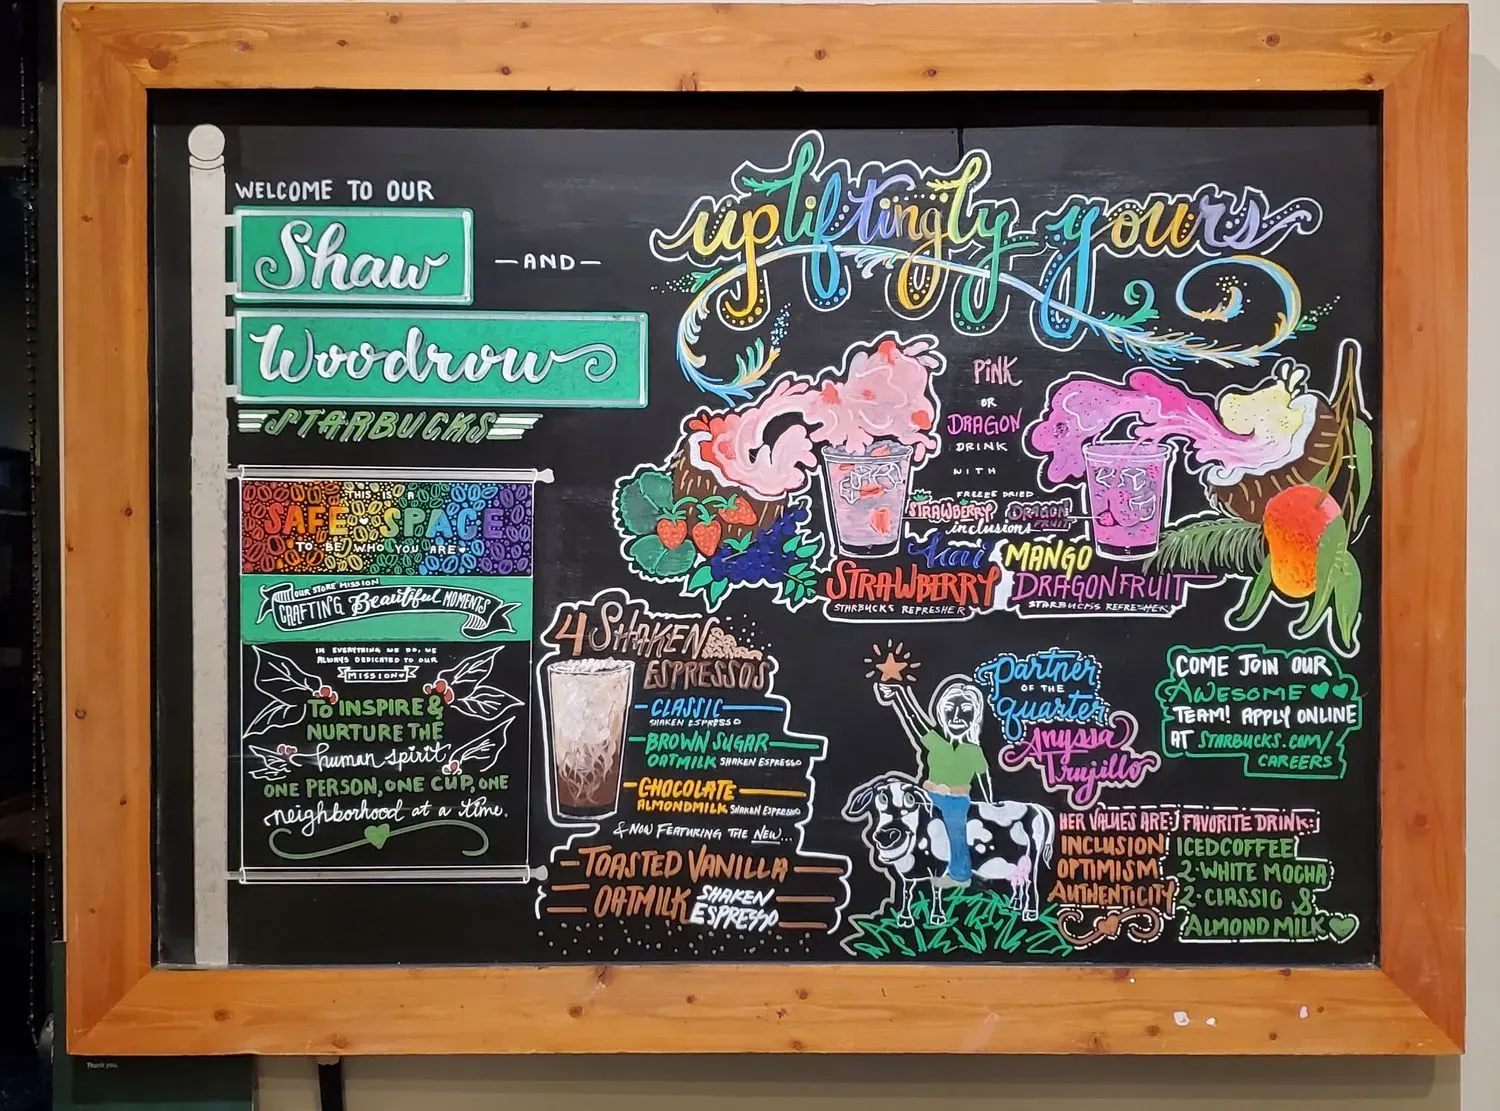 WELCOME TO OUR
Shaw
—AND—
Woodrow
STARBUCKS
THIS IS A
SAFE SPACE
TO BE WHO YOU ARE
OUR STORE MISSION
CRAFTING Beautiful MOMENTS
IN EVERYTHING WE DO, WE
ALWAYS DEDICATED TO OUR
MISSION
TO INSPIRE &
NURTURE THE
human spirit
ONE PERSON, ONE CUP, ONE
neighborhood at a time.
upliftingly yours
PiNK
OR
DRAGON
DRINK
WITH
FREEZE DRIED
STRAWBERRY DRAGON
FRUIT
inclusions
Acai
STRAWBERRY
STARBUCKS REFRESHER
MANGO
DRAGONFRUIT
STARBUCKS REFRESHER
4 SHAKEN
ESPRESSOS
CLASSIC
SHAKEN ESPRESSO
BROWN SUGAR
OATMILK SHAKEN ESPRESSO
CHOCOLATE
ALMONDMILK SHAKEN ESPRESSO
& NOW FEATURING THE NEW...
TOASTED VANILLA
OATMILK SHAKEN
ESPRESSO
partner
OF THE
quarter
Anyssa
Trujillo
COME JOIN OUR
AWESOME
TEAM! APPLY ONLINE
AT STARBUCKS.COM/
CAREERS
HER VALUES ARE:
INCLUSION
OPTIMISM
AUTHENTICITY
FAVORITE DRINK:
ICED COFFEE
2-WHITE MOCHA
2-CLASSIC &
ALMOND MILK
Thank you.